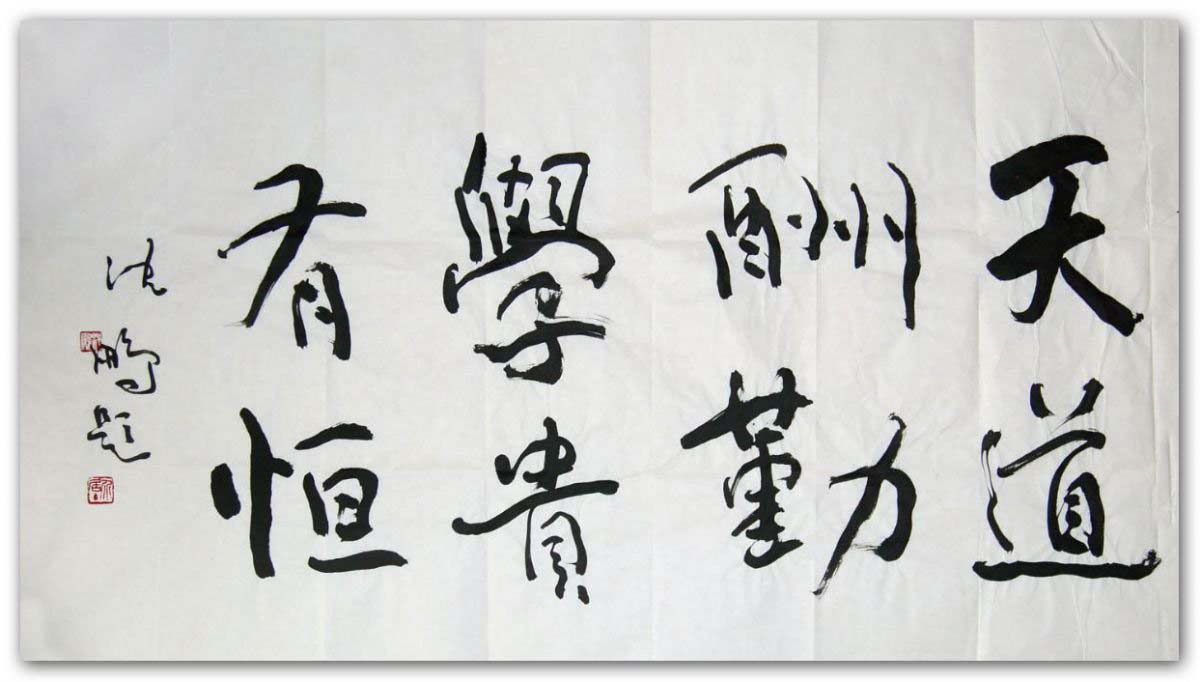 天道
酬勤
學貴
有恒
沈鵬題